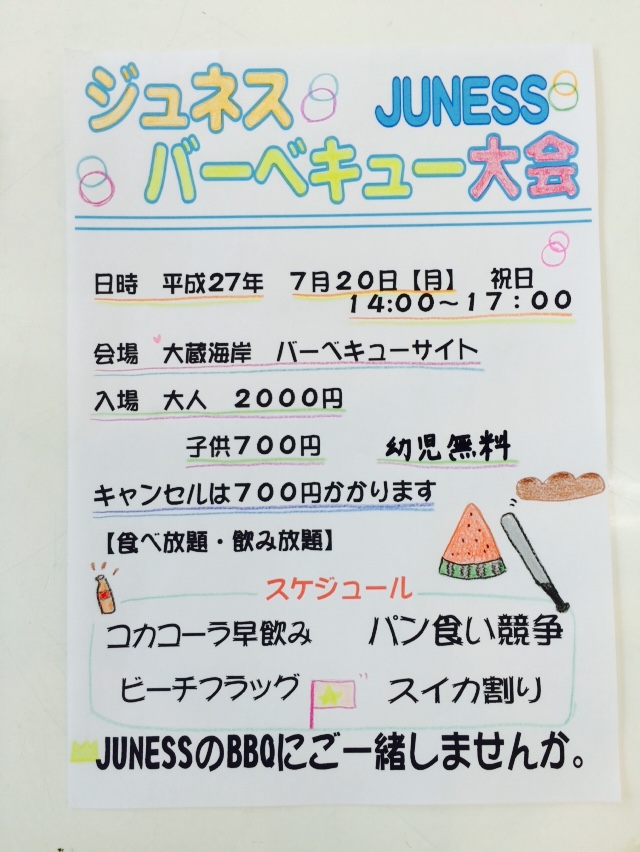 ジュネス JUNESS
バーベキュー大会
日時 平成27年 7月20日【月】 祝日
14:00～17：00
会場 大蔵海岸 バーベキューサイト
入場 大人 2000円
子供700円 幼児無料
キャンセルは700円かかります
【食べ放題・飲み放題】
スケジュール
コカコーラ早飲み パン食い競争
ビーチフラッグ スイカ割り
JUNESSのBBQにご一緒しませんか。